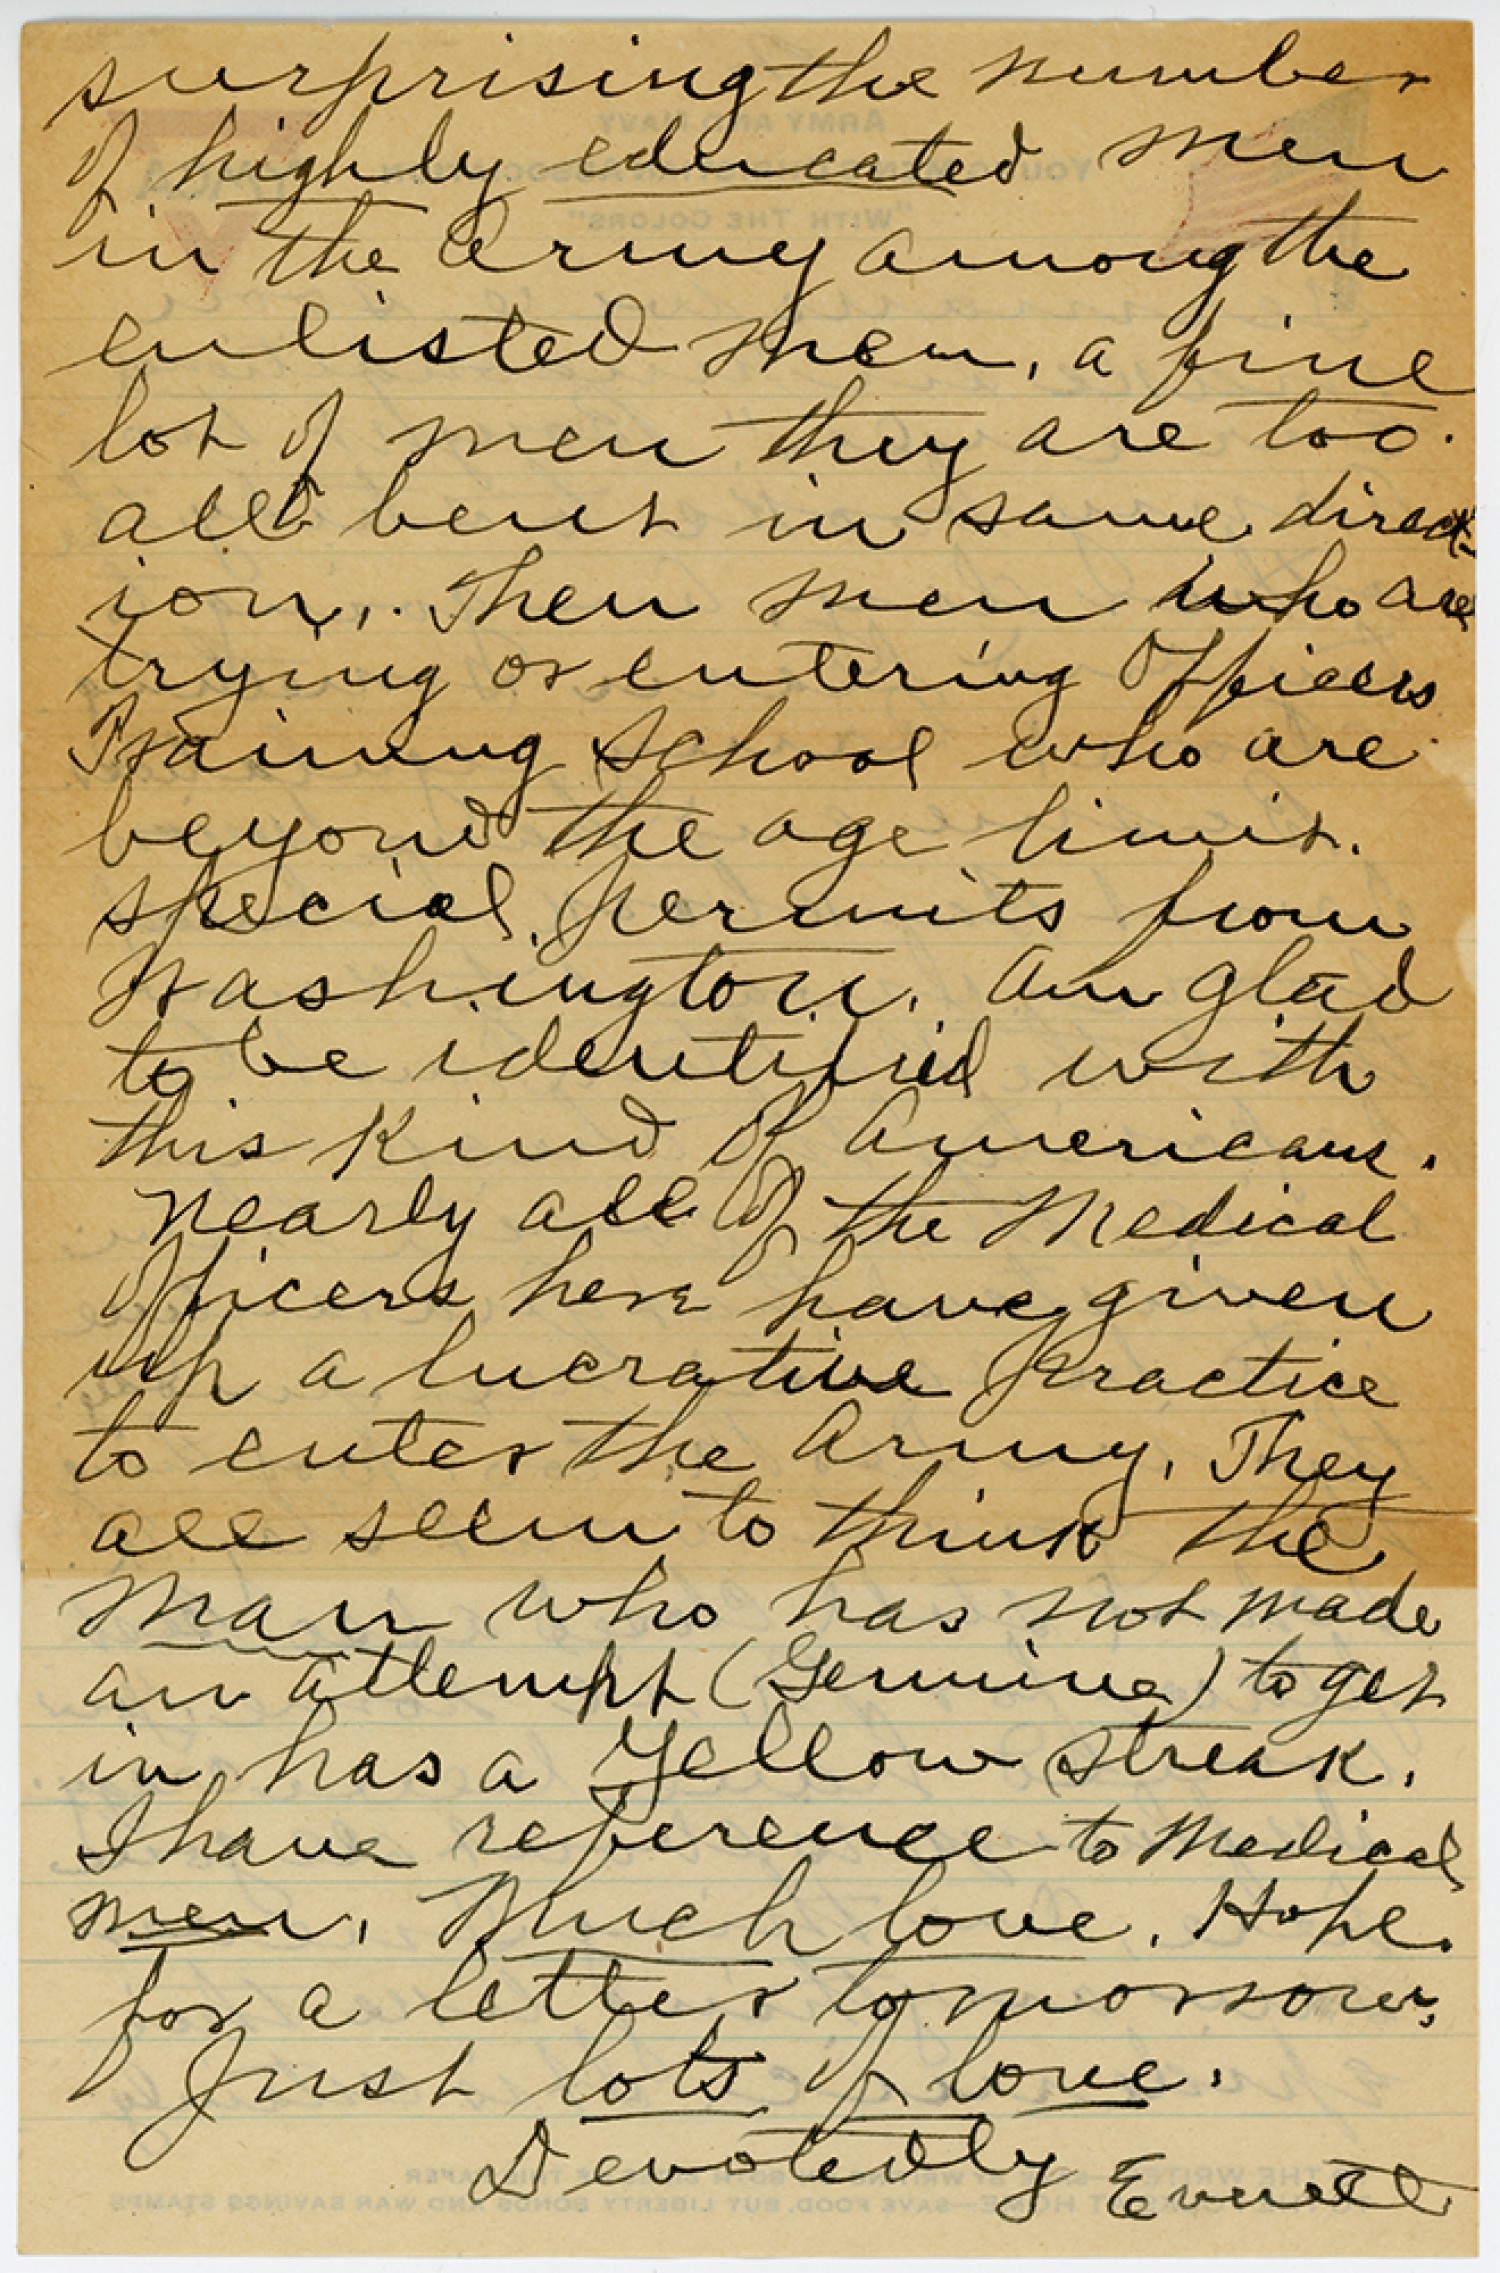 surprising the number
of highly educated men
in the Army among the
enlisted men, a fine
lot of men they are too.
all bent in same direct-
ion. Then men who are
trying or entering Officers
Training School who are
beyond the age limit.
special permits from
Washington. Am glad
to be identified with
this kind of Americans.
Nearly all of the Medical
Officers here have given
up a lucrative practice
to enter the Army. They
all seem to think the
man who has not made
an attempt (Genuine) to get
in has a Yellow streak.
I have reference to Medical
men. Much love. Hope
for a letter tomorrow.
Just lots of love.
Devotedly Everett